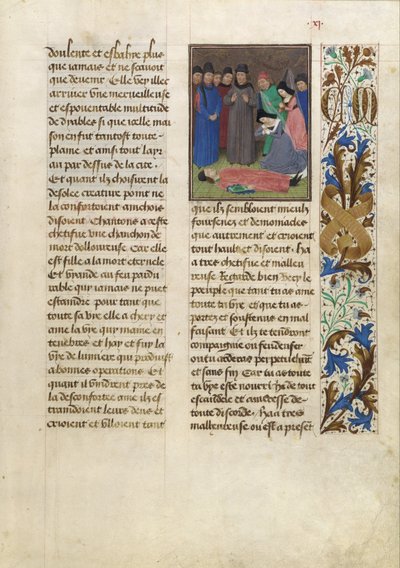 .xi.
doulente et esbahie plus
que iamais et ne scauoit
que deuenir Elle vey illec
arriuer vne merueilleuse
et espouentable multitude
de dyables si que icelle mai
son en fut tantost toute
plaine et ainsi tout lay
au par dessus de la cite.
Et quant ilz choisirent la
desolee creature point ne
la conforterent aincois
disoient Chantons a ceste
chetifue vne chancon de
mort dolloureuse Car elle
est fille a la mort eternele
Et viande au feu pardu
rable qui iamais ne puet
estaindre pour tant que
toute sa vye elle a chery et
ame la vye qui maine en
tenebres et hay et fuy la
vye de lumiere qui produist
a bonnes operations Et
quant ilz vindrent pres de
la desconfortee ame ilz es
traindoient leurs dens et
crioient et vlloient tant
que ilz sembloient mieulx
foursenez et demoniacles
que autrement et crioient
tout hault et disoient. Ha
a tres chetifue et malleu
reuse Regarde bien vecy le
poeuple que tant tu as ame
toute ta vye et que tu as
portez et soustenus en mal
faisant Et ilz te tendront
compaignie ou feu denfer
ou tu arderas perpetuelement
et sans fin Car tu as toute
ta vye este nourrice de tout
escandele et amieresse de
toute discorde. Haa tres
malleureuse ou est a preset